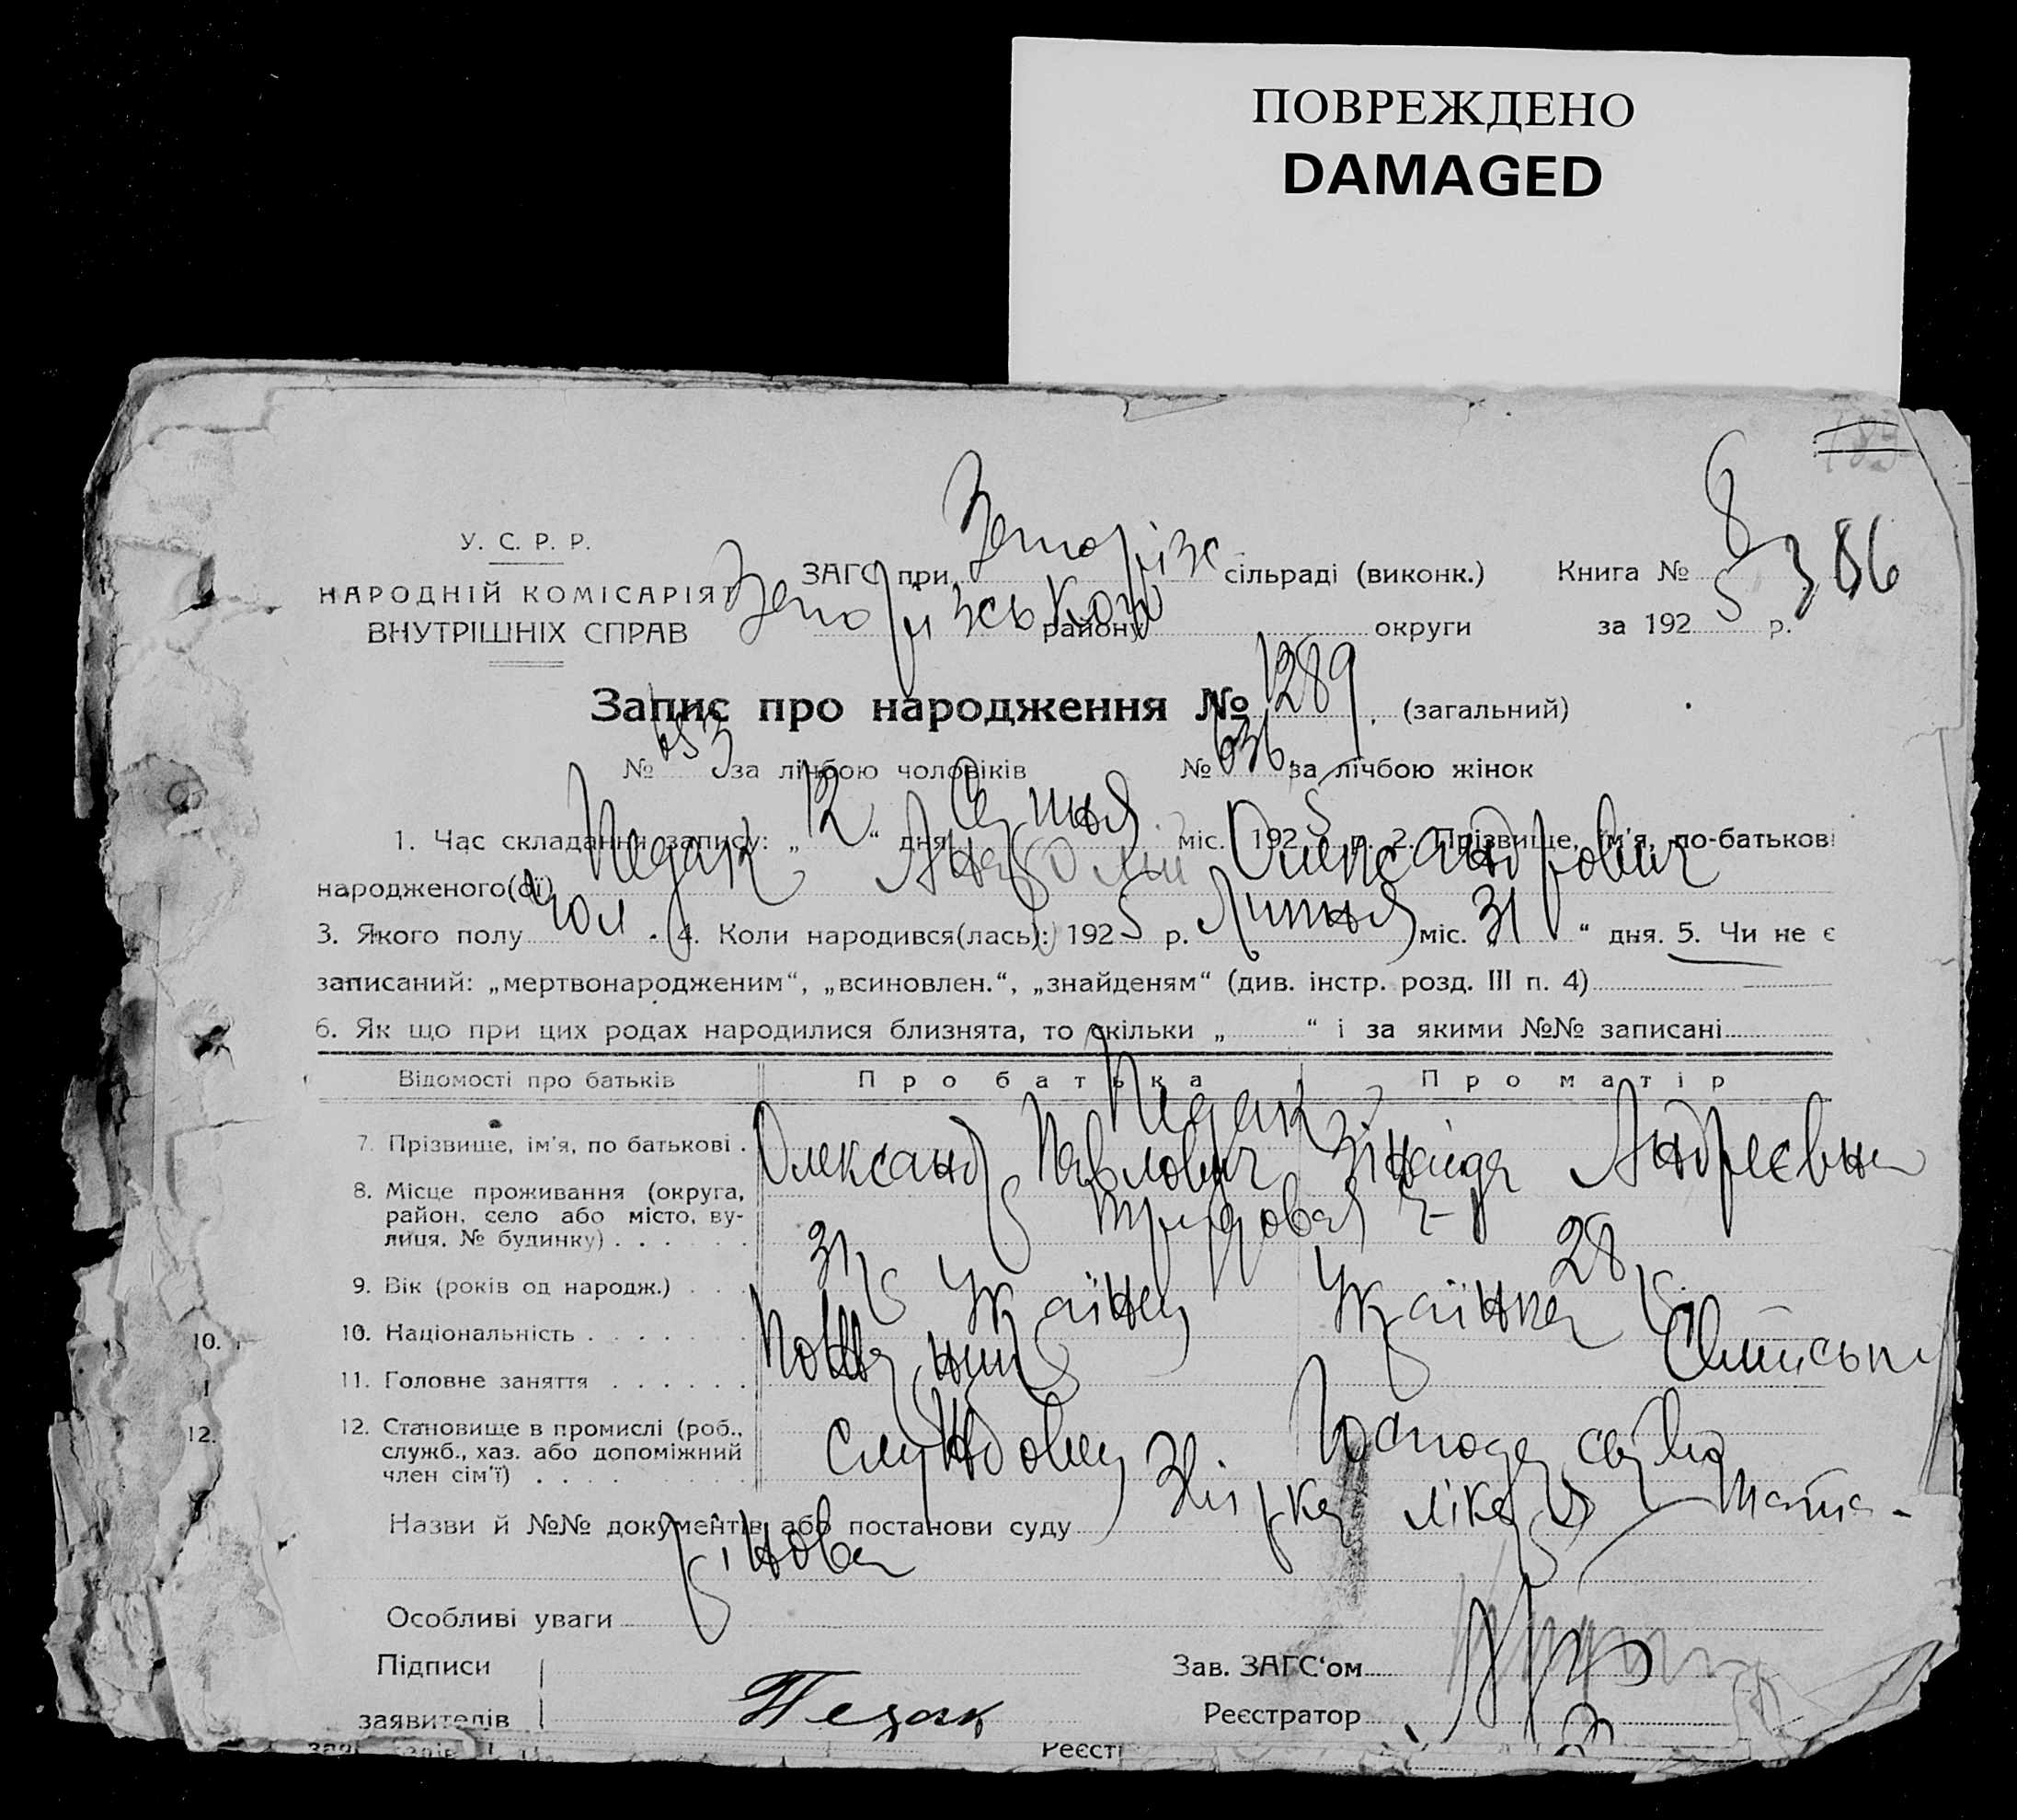 ПОВРЕЖДЕНО
DAMAGED
У. С. Р. Р.
НАРОДНІЙ КОМІСАРІЯТ
ВНУТРІШНІХ СПРАВ
ЗАГС при Запоріз сільраді (виконк.)
Запорізського району округи
Книга № 8
386
за 1925 р.
Запис про народження № 1289 (загальний)
№ 653 за лічбою чоловіків № 636 за лічбою жінок
1. Час складання запису: „12“ дня Серпня міс. 1925 р. 2. Прізвище, ім'я, по-батькові
народженого(ої) Педак Анатолій Олександрович
3. Якого полу чол. 4. Коли народився(лась): 1925 р. Липня міс. „31“ дня. 5. Чи не є
записаний: „мертвонародженим“, „всиновлен.“, „знайденям“ (див. інстр. розд. III п. 4)
6. Як що при цих родах народилися близнята, то скільки „ “ і за якими №№ записані
Відомості про батьків Про батька Про матір
Педак
7. Прізвище, ім'я, по батькові . Олександр Павлович Зінаїда Андреєвна
8. Місце проживання (округа,
район, село або місто, ву-
лиця, № будинку) . . . . . .
9. Вік (років од народж.) . . . 31 28
10. Національність . . . . . . . Українец Українка
11. Головне заняття . . . . . .
12. Становище в промислі (роб.,
служб., хаз. або допоміжний
член сім'ї) . . . . . . . . .
Назви й №№ документів або постанови суду лікаря
Особливі уваги
Підписи
заявителів Педак
Зав. ЗАГС'ом
Реєстратор
10.
12.
Реєст